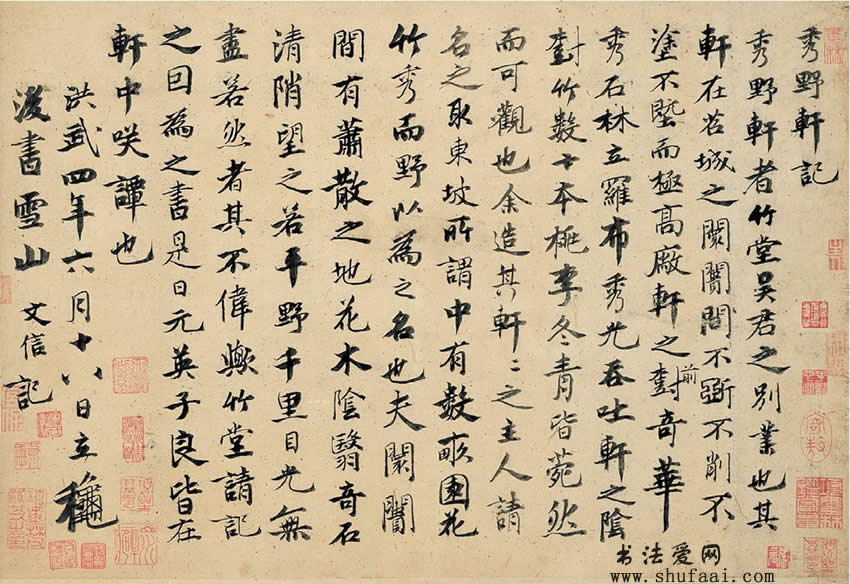 秀野軒記
秀野軒者竹堂吳君之別業也其
軒在苕城之闤闠間不斵不削不
塗不塈而極高廠軒之前對奇華
秀石林立羅布秀光吞吐軒之陰
對竹數十本桃李冬青皆菀然
而可觀也余造其軒〻之主人請
名之取東坡所謂中有數畝園花
竹秀而野以為之名也夫闤闠
間有蕭散之地花木陰翳奇石
清陗望之若平野千里目光無
盡若然者其不偉歟竹堂請記
之因為之書是日元英子良皆在
軒中咲譚也
洪武四年六月十八日立穐
後書雪山文信記
书法爱网
www.shufaai.com